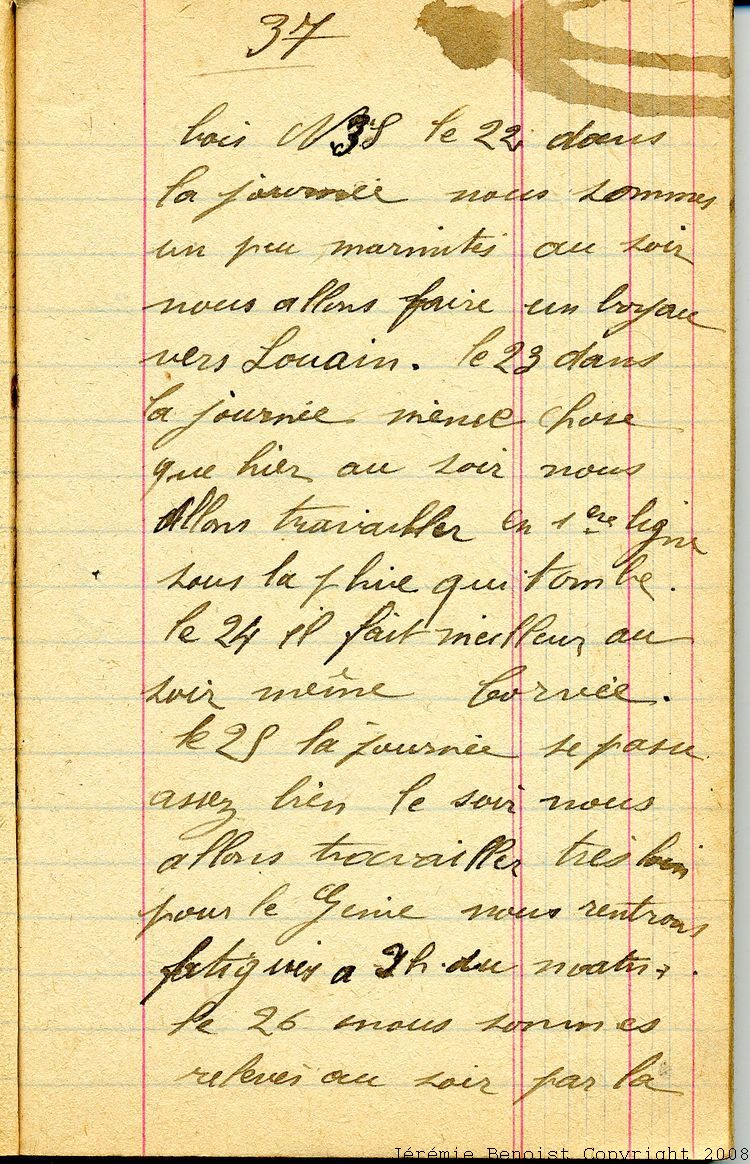 37
bois N 38 le 22 dans
la journée nous sommes
un peu marmités au soir
nous allons faire un boyau
vers Louain. le 23 dans
la journée même chose
que hier au soir nous
allons travailler en 1ere ligne
sous la pluie qui tombe.
le 24 il fait meilleur au
soir même Corvée.
le 25 la journée se passe
assez bien le soir nous
allons travailler très loin
pour le Genie nous rentrons
fatigués a 2h. du matin.
le 26 nous sommes
relevés au soir par la
Jérémie Benoist Copyright 2008